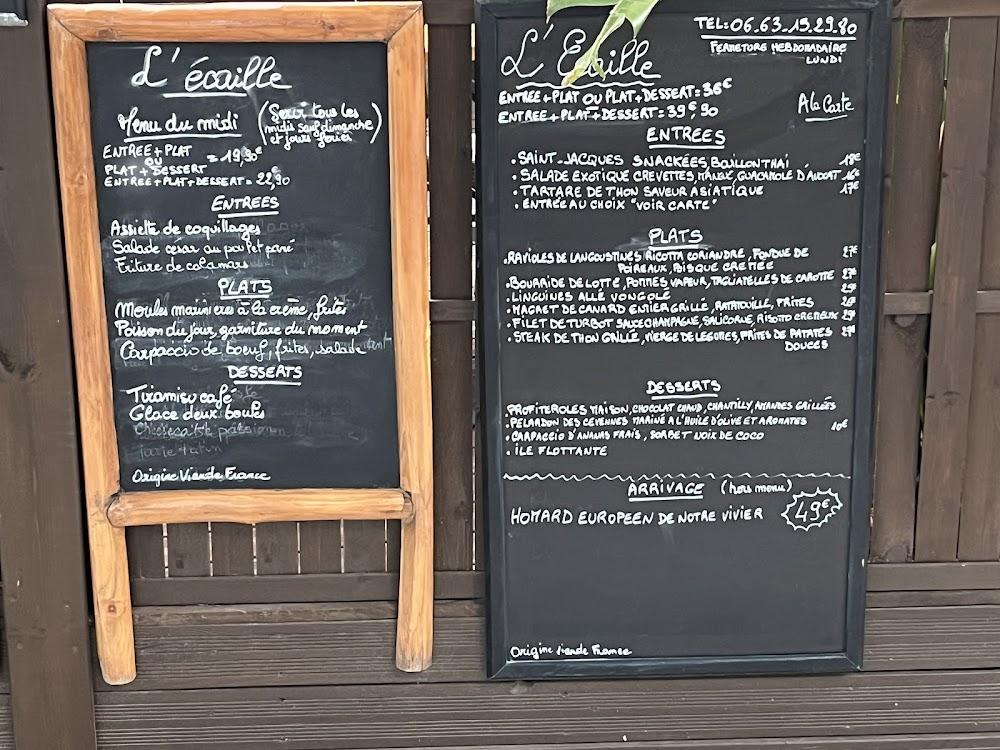 L'écaille
Menu du midi
(Servi tous les
midis sauf dimanche
et jours fériés)
ENTREE+PLAT
OU
PLAT+DESSERT
= 19,90€
ENTREE+PLAT+DESSERT = 22,90
ENTREES
Assiette de coquillages
Salade césar au poulet pané
Friture de calamars
PLATS
Moules marinières à la crème, frites
Poisson du jour, garniture du moment
Carpaccio de boeuf, frites, salade
DESSERTS
Tiramisu café
Glace deux boules
Origine Viande France
L'Ecaille
TEL: 06.63.15.29.80
FERMETURE HEBDOMADAIRE
LUNDI
ENTREE+PLAT OU PLAT+DESSERT = 36€
ENTREE+PLAT+DESSERT = 39€,90
A la Carte
ENTREES
. SAINT-JACQUES SNACKÉES, BOUILLON THAI 18€
. SALADE EXOTIQUE CREVETTES, MANGUE, GUACAMOLE D'AVOCAT 16€
. TARTARE DE THON SAVEUR ASIATIQUE 17€
. ENTREE AU CHOIX "VOIR CARTE"
PLATS
. RAVIOLES DE LANGOUSTINES RICOTTA CORIANDRE, FONDUE DE 27€
POIREAUX, BISQUE CREMEE
. BOURRIDE DE LOTTE, POMMES VAPEUR, TAGLIATELLES DE CAROTTE 27€
. LINGUINES ALLE VONGOLE 25€
. MAGRET DE CANARD ENTIER GRILLÉ, RATATOUILLE, FRITES 26€
. FILET DE TURBOT SAUCE CHAMPAGNE, SALICORNE, RISOTTO CREMEUX 29€
. STEAK DE THON GRILLÉ, VIERGE DE LEGUMES, FRITES DE PATATES 27€
DOUCES
DESSERTS
. PROFITEROLES MAISON, CHOCOLAT CHAUD, CHANTILLY, AMANDES GRILLÉES
. PELARDON DES CEVENNES MARINÉ A L'HUILE D'OLIVE ET AROMATES 10€
. CARPACCIO D'ANANAS FRAIS, SORBET NOIX DE COCO
. ILE FLOTTANTE
ARRIVAGE (hors menu)
HOMARD EUROPEEN DE NOTRE VIVIER 49€
Origine Viande France